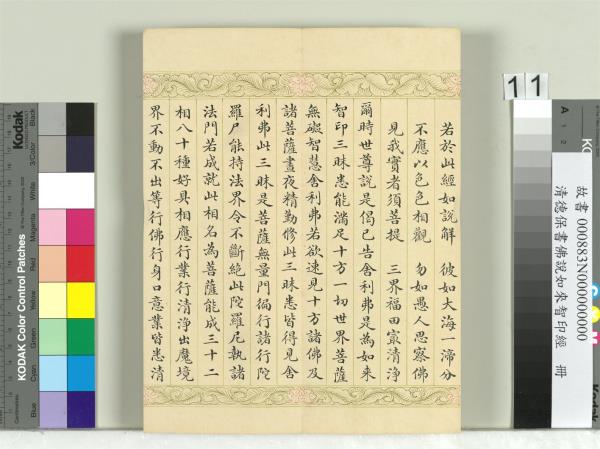 若於此經如說解　彼如大海一渧分
不應以色色相觀　勿如愚人思察佛
見我實者須菩提　三界福田㝡清淨
爾時世尊說是偈已告舍利弗是為如來
智印三昧悉能滿足十方一切世界菩薩
無礙智慧舍利弗若欲速見十方諸佛及
諸菩薩晝夜精勤修此三昧悉皆得見舍
利弗此三昧是菩薩無量門徧行諸行陀
羅尼能持法界令不斷絕此陀羅尼執諸
法門若成就此相名為菩薩能成三十二
相八十種好具相應行業行清淨出魔境
界不動不出等行佛行身口意業皆悉清
11
故書 000883N000000000
清德保書佛說如來智印經 冊
Kodak
KODAK Color Control Patches
Blue
Cyan
Green
Yellow
Red
Magenta
White
3/Color
Black
Kodak
A 1 2
C
M